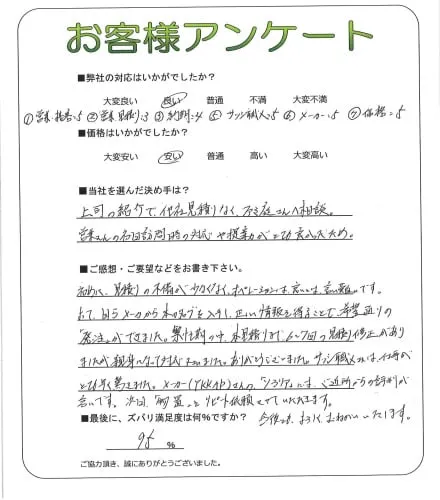 お客様アンケート
■弊社の対応はいかがでしたか?
大変良い 良い 普通 不満 大変不満
①営業・担当=5 ②営業見積り=3 ③ 4 ⑤サッシ職人=5 ⑥メーカー=5 ⑦価格=5
■価格はいかがでしたか?
大変安い 安い 普通 高い 大変高い
■当社を選んだ決め手は?
上司の紹介で、他社見積りなく、 さんへ相談。
営業さんの初回訪問時の対応や提案力がとても良かったため。
■ご感想・ご要望などをお書き下さい。
初めに、見積りの不備が少なくなく、オペレーションは良いとは言い難いです。
自らメーカーからカタログを入手し、正しい情報を得ることで希望通りの
「発注」ができました。 の中、本見積りまで6~7回の見積り修正があり
ましたが親身になって対応下さいました。ありがとうございました。サッシ職人さんは、仕事が
とても早く驚きました。メーカー(YKKAP)さんの「 」は、ご近所からの評判が
良いです。次回、「 」をリピート依頼させていただきます。
■最後に、ズバリ満足度は何%ですか? 今後とも、よろしくおねがいいたします。
95 %
ご協力頂き、誠にありがとうございました。